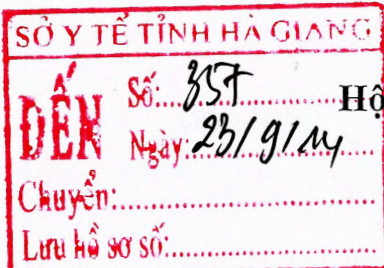 SỞ Y TẾ TỈNH HÀ GIANG
ĐẾN
Số: 357
Hộ
Ngày: 23/9/14
Chuyển:
Lưu hồ sơ số: